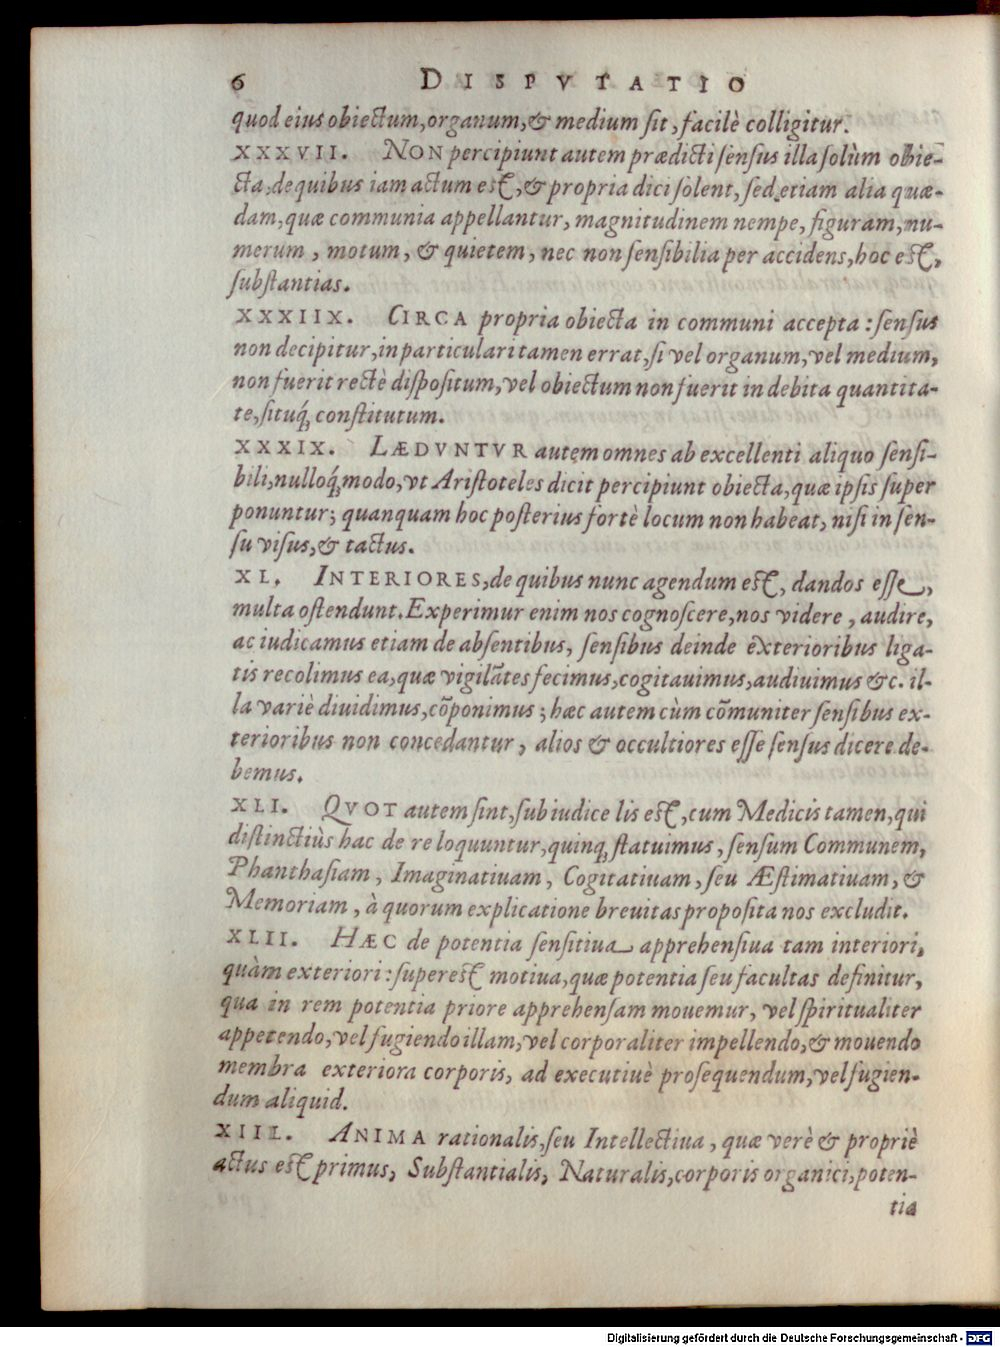 6 DISPVTATIO
quod eius obiectum, organum, & medium sit, facilè colligitur.
XXXVII. NON percipiunt autem prædicti sensus illa solùm obie-
cta, de quibus iam actum est, & propria dici solent, sed etiam alia quæ-
dam, quæ communia appellantur, magnitudinem nempe, figuram, nu-
merum, motum, & quietem, nec non sensibilia per accidens, hoc est,
substantias.
XXXIIX. CIRCA propria obiecta in communi accepta: sensus
non decipitur, in particulari tamen errat, si vel organum, vel medium,
non fuerit rectè dispositum, vel obiectum non fuerit in debita quantita-
te, situq́; constitutum.
XXXIX. LÆDVNTVR autem omnes ab excellenti aliquo sensi-
bili, nulloq́; modo, vt Aristoteles dicit percipiunt obiecta, quæ ipsis super
ponuntur; quanquam hoc posterius fortè locum non habeat, nisi in sen-
su visus, & tactus.
XL. INTERIORES, de quibus nunc agendum est, dandos esse,
multa ostendunt. Experimur enim nos cognoscere, nos videre, audire,
ac iudicamus etiam de absentibus, sensibus deinde exterioribus liga-
tis recolimus ea, quæ vigilātes fecimus, cogitauimus, audiuimus &c. il-
la variè diuidimus, cōponimus; hæc autem cùm cōmuniter sensibus ex-
terioribus non concedantur, alios & occultiores esse sensus dicere de-
bemus.
XLI. QVOT autem sint, sub iudice lis est, cum Medicis tamen, qui
distinctiùs hac de re loquuntur, quinq; statuimus, sensum Communem,
Phanthasiam, Imaginatiuam, Cogitatiuam, seu Æstimatiuam, &
Memoriam, à quorum explicatione breuitas proposita nos excludit.
XLII. HÆC de potentia sensitiua apprehensiua tam interiori,
quàm exteriori: superest motiua, quæ potentia seu facultas definitur,
qua in rem potentia priore apprehensam mouemur, vel spiritualiter
appetendo, vel fugiendo illam, vel corporaliter impellendo, & mouendo
membra exteriora corporis, ad executiuè prosequendum, vel fugien-
dum aliquid.
XIIL. ANIMA rationalis, seu Intellectiua, quæ verè & propriè
actus est primus, Substantialis, Naturalis, corporis organici, poten-
tia
Digitalisierung gefördert durch die Deutsche Forschungsgemeinschaft - DFG